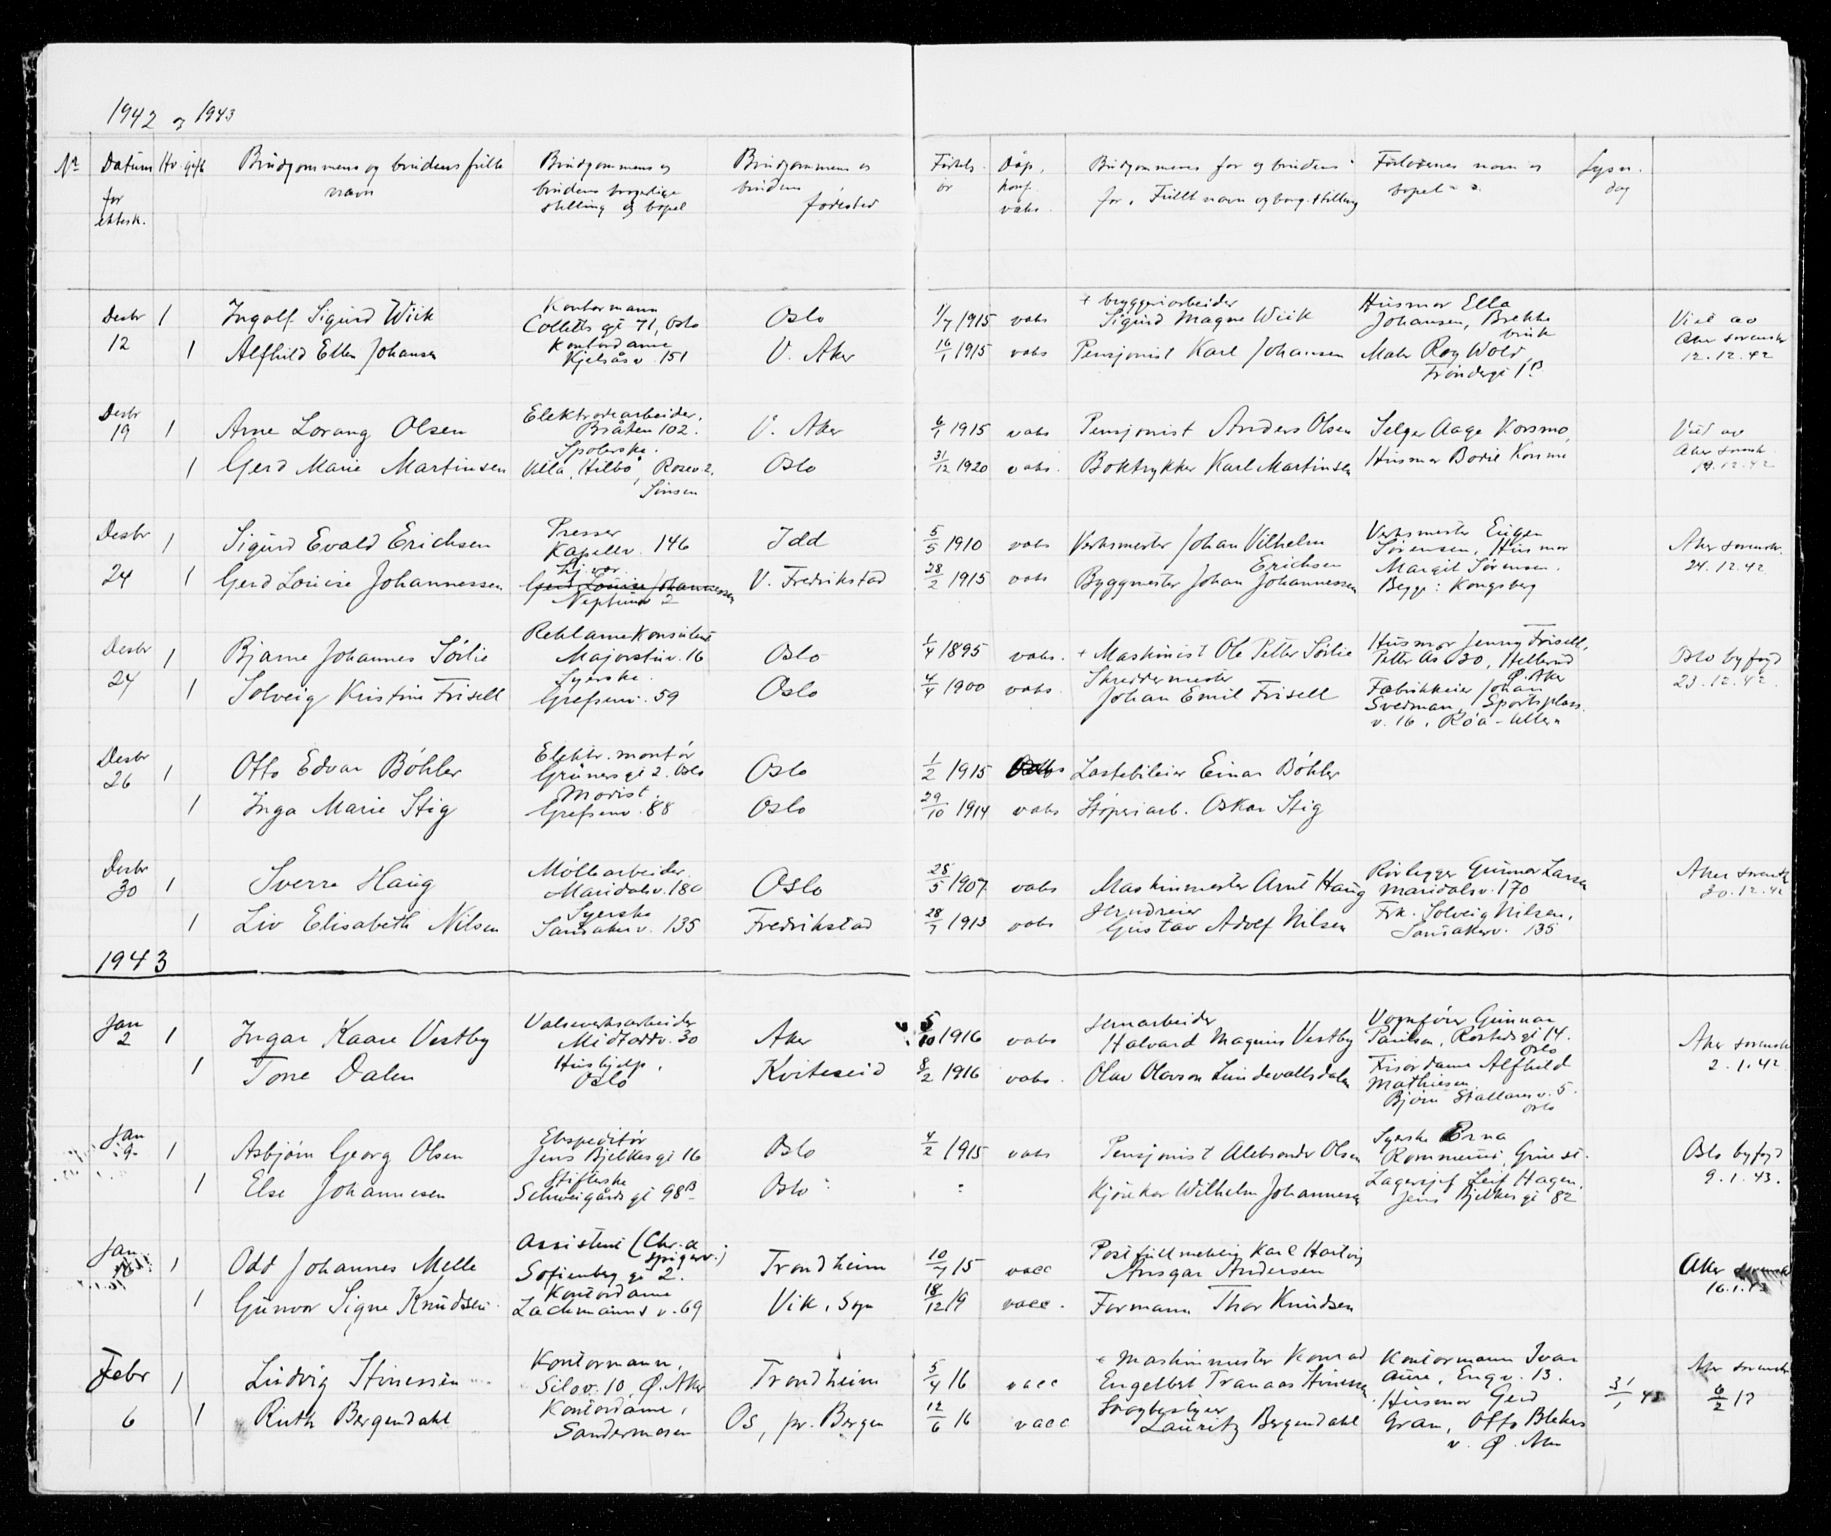 1942 og 1943
Nr Datum for ektesk. Hv gift Brudgommens og brudens fulle navn Brudgommens og brudens borgerlige stilling og bopel Brudgommens og brudens fødested Fødsels år Dåp, konf. vaks. Brudgommens far og brudens far, Fullt navn og borg. stilling Forlovernes navn og bopel Lysn. dag
Desbr 12 1 Ingolf Sigurd Wiik Kontormann Colletts gt 71, Oslo Oslo 1/7 1915 vaks + bryggeriarbeider Sigurd Magne Wiik Husmor Ella Johansen, Brekke bruk Viet av Aker sorenskr 12.12.42
1 Alfhild Ellen Johansen Kontordame Kjelsåsv. 151 V. Aker 16/1 1915 vaks Pensjonist Karl Johansen Maler Roy Wold Trondergt 1B
Desbr 19 1 Arne Lorang Olsen Elektrodearbeider. Bråten 102. V. Aker 6/1 1915 vaks Pensjonist Anders Olsen Selger Aage Korsmo, Viet av Aker sorensk. 19.12.42
1 Gerd Marie Martinsen Spolerske. Villa Hilbo, Rosenv. 2, Sinsen Oslo 31/12 1920 vaks. Boktrykker Karl Martinsen Husmor Bodil Korsmo
Desbr 24 1 Sigurd Evald Erichsen Presser Kapellv. 146 Idd 5/5 1910 vaks Verksmester Johan Vilhelm Erichsen Verksmester Eugen Sørensen, Husmor Aker sorenskr. 24.12.42
1 Gerd Louise Johannessen Hj.vær. Gerd Louise Johannessen Neptunv 2 V. Fredrikstad 28/2 1915 vaks Byggmester Johan Johannessen Margit Sørensen. Begge: Kongsberg
Desbr 24 1 Bjarne Johannes Sørlie Reklamekonsulent Majorstuv. 16 Oslo 1/4 1895 vaks. + Maskinist Ole Petter Sørlie Husmor Jenny Frisell, Petter Ås 30, Hellerud Ø. Aker Oslo byfogd 23.12.42.
1 Solveig Kristine Frisell Syerske. Grefsenv. 59 Oslo 4/4 1900 vaks. Skreddermester Johan Emil Frisell Fabrikkeier Johan Svedman, Sportsplass v. 16, Røa - Aker
Desbr 26 1 Otto Edvar Bøhler Elektr. montør Grüners gt 2. Oslo Oslo 1/2 1915 vaks Lastebileier Einar Bøhler
1 Inga Marie Stig Modist. Grefsenv. 88 Oslo 29/10 1914 vaks Støperiarb. Oskar Stig
Desbr 30 1 Sverre Haug Møllearbeider. Maridalsv. 180 Oslo 25/5 1907 vaks Maskinmester Arnt Haug Rørlegger Gunnar Larsen Maridalsv. 170 Aker sorensk 30.12.42
1 Liv Elisabeth Nilsen Syerske Sandakerv. 135 Fredrikstad 28/7 1913 vaks Gustav Adolf Nilsen Frk. Solveig Nilsen, Sandakerv. 135
1943
Jan 2 1 Ingar Kaare Vestby Valseverksarbeider Midtoddv. 30 Aker 5/10 1916 vaks Jernarbeider Halvard Magnus Vestby Vognfører Gunnar Paulsen, Rostedsgt 14. Oslo Aker sorensk 2.1.42
1 Tone Dalen Hushjelp, Oslo Kviteseid 8/2 1916 vaks. Olav Olavson Lundevallsdalen Frisørdame Alfhild Mathiesen Bjørn Stallaresv. 5. Oslo
Jan 9 1 Asbjørn Georg Olsen Ekspeditør Jens Bjelkes gt 16 Oslo 4/2 1915 vaks Pensjonist Aleksander Olsen Syerske Erna Rommerud, Grue st. Oslo byfogd 9.1.43.
1 Else Johannesen Stifterske Schweigårds gt 98B Oslo Kjørekar Wilhelm Johannesen Lagersjef Leif Hagen, Jens Bjelkes gt 82
Jan 1 Odd Johannes Melle Assistent (Chr.a Spigerv.) Sofienberg gt 2. Trondheim 10/7 15 vacc Postfullmektig Karl Hartvig Ansgar Andersen Aker sorensk 16.1.43
1 Gunvor Signe Knudsen Kontordame Lachmanns v. 69 Vik, Sogn 18/12 19 vacc. Formann Thor Knudsen
Febr 6 1 Ludvig Stinessen Kontormann, Silov. 10, Ø. Aker Trondheim 5/4 16 vacc + Maskinmester Konrad Engelbrt Tranaas Stinessen Kontormann Ivar Aure, Engv. 13. 31/1 43 Aker sorensk 6/2 43
1 Ruth Bergendahl Kontordame, Sandermosen Os, pr. Bergen 12/6 16 vacc Lauritz Bergendahl Husmor Gerd Gran, Otto Blehrs v. Ø. Aker